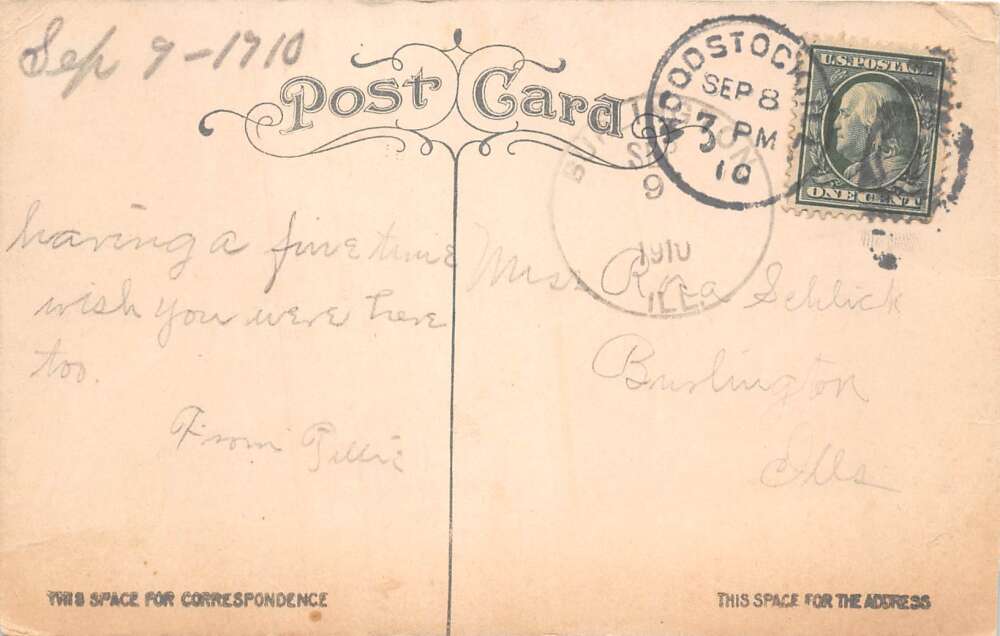 Sep 9-1910
Post Card
WOODSTOCK
SEP 8
3 PM
10
U.S. POSTAGE
ONE CENT
BURLINGTON
SEP
9
1910
ILL.
having a fine time
wish you were here
too.
From
Miss Rosa Schlick
Burlington
Ills
THIS SPACE FOR CORRESPONDENCE
THIS SPACE FOR THE ADDRESS